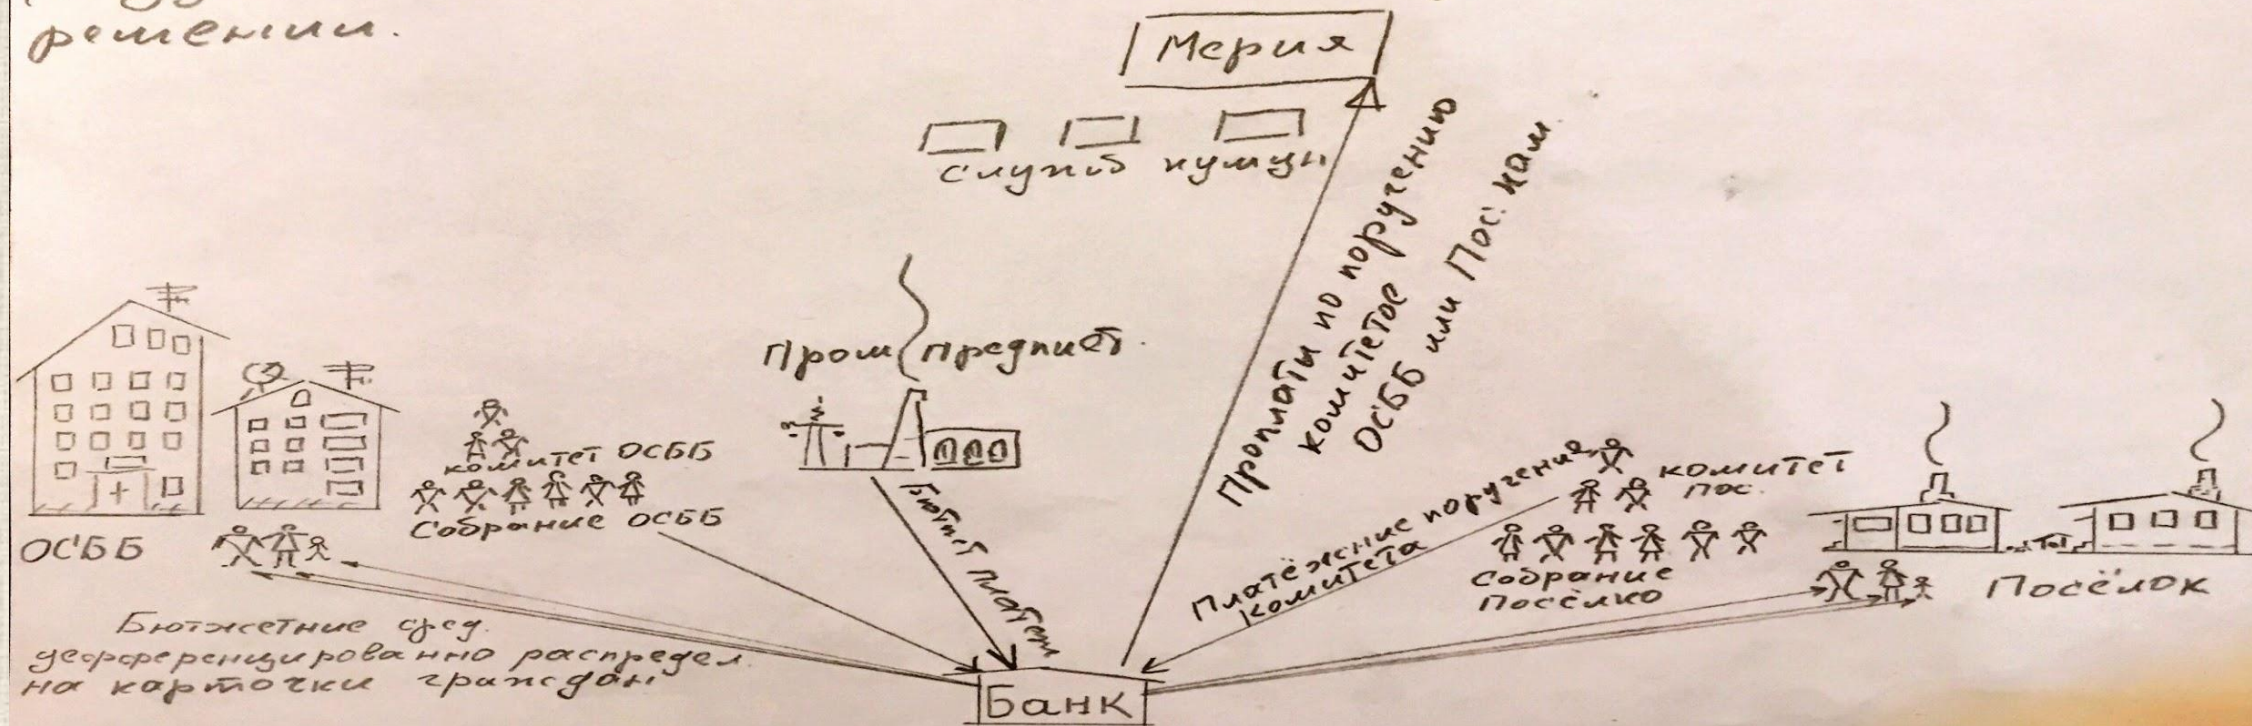 решении.
Мерия
служб кумун
Пром предпист.
Проплаты по поручению
комитетов
ОСББ или Пос. кам
комитет ОСББ
Собрание ОСББ
ОСББ
Бютжет платеж
Платёжение поручение
комитета
комитет
пос.
Собрание
Посёлко
Посёлок
Бютжетние сред.
дефференцированно распредел.
на карточки граждан.
Банк